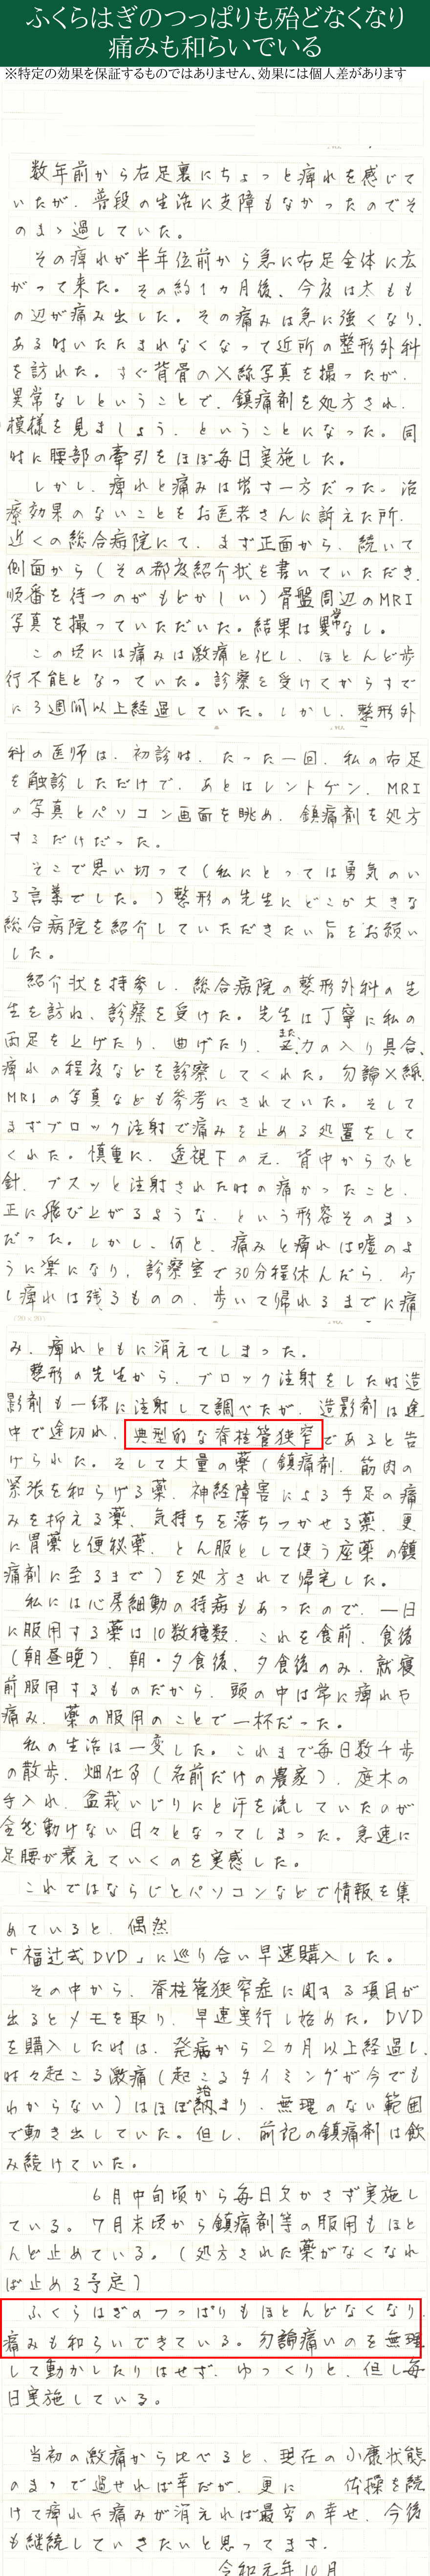 ふくらはぎのつっぱりも殆どなくなり
痛みも和らいでいる
※特定の効果を保証するものではありません、効果には個人差があります
数年前から右足裏にちょっと痺れを感じて
いたが、普段の生活に支障もなかったのでそ
のまゝ過していた。
その痺れが半年位前から急に右足全体に広
がって来た。その約1ヵ月後、今度は太もも
の辺が痛み出した。その痛みは急に強くなり、
ある時いたたまれなくなって近所の整形外科
を訪れた。すぐ背骨のX線写真を撮ったが、
異常なしということで、鎮痛剤を処方され、
模様を見ましょう、ということになった。同
時に腰部の牽引をほぼ毎日実施した。
しかし、痺れと痛みは増す一方だった。治
療効果のないことをお医者さんに訴えた所、
近くの総合病院にて、まず正面から、続いて
側面から(その都度紹介状を書いていただき、
順番を待つのがもどかしい)骨盤周辺のMRI
写真を撮っていただいた。結果は異常なし。
この頃には痛みは激痛と化し、ほとんど歩
行不能となっていた。診察を受けてからすで
に3週間以上経過していた。しかし、整形外
科の医師は、初診時、たった一回、私の右足
を触診しただけで、あとはレントゲン、MRI
の写真とパソコン画面を眺め、鎮痛剤を処方
するだけだった。
そこで思い切って(私にとっては勇気のい
る言葉でした。)整形の先生にどこか大きな
総合病院を紹介していただきたい旨をお願い
した。
紹介状を持参し、総合病院の整形外科の先
生を訪ね、診察を受けた。先生は丁寧に私の
両足を上げたり、曲げたり、又、力の入り具合、
痺れの程度などを診察してくれた。勿論X線、
MRIの写真なども参考にされていた。そして
まずブロック注射で痛みを止める処置をして
くれた。慎重に、透視下の元、背中からひと
針、ブスッと注射された時の痛かったこと、
正に飛び上がるような、という形容そのまゝ
だった。しかし、何と、痛みと痺れは嘘のよ
うに楽になり、診察室で30分程休んだら、少
し痺れは残るものの、歩いて帰れるまでに痛
み、痺れともに消えてしまった。
整形の先生から、ブロック注射をした時造
影剤も一緒に注射して調べたが、造影剤は途
中で途切れ、典型的な脊柱管狭窄であると告
げられた。そして大量の薬(鎮痛剤、筋肉の
緊張を和らげる薬、神経障害による手足の痛
みを抑える薬、気持ちを落ちつかせる薬、更
に胃薬と便秘薬、とん服として使う座薬の鎮
痛剤に至るまで)を処方されて帰宅した。
私には心房細動の持病もあったので、一日
に服用する薬は10数種類、これを食前、食後
(朝昼晩)、朝・夕食後、夕食後のみ、就寝
前服用するものだから、頭の中は常に痺れや
痛み、薬の服用のことで一杯だった。
私の生活は一変した。これまで毎日数千歩
の散歩、畑仕事(名前だけの農家)、庭木の
手入れ、盆栽いじりにと汗を流していたのが
全然動けない日々となってしまった。急速に
足腰が衰えていくのを実感した。
これではならじとパソコンなどで情報を集
めていると、偶然
「福辻式DVD」に巡り合い早速購入した。
その中から、脊柱管狭窄症に関する項目が
出るとメモを取り、早速実行し始めた。DVD
を購入した時は、発病から2ヵ月以上経過し、
時々起こる激痛(起こるタイミングが今でも
わからない)はほぼ治まり、無理のない範囲
で動き出していた。但し、前記の鎮痛剤は飲
み続けていた。
6月中旬頃から毎日欠かさず実施し
ている。7月末頃から鎮痛剤等の服用もほと
んど止めている。(処方された薬がなくなれ
ば止める予定)
ふくらはぎのつっぱりもほとんどなくなり、
痛みも和らいできている。勿論痛いのを無理
して動かしたりはせず、ゆっくりと、但し毎
日実施している。
当初の激痛から比べると、現在の小康状態
のまゝで過せれば幸だが、更に 体操を続
けて痺れや痛みが消えれば最高の幸せ、今後
も継続していきたいと思ってます。
令和元年10月